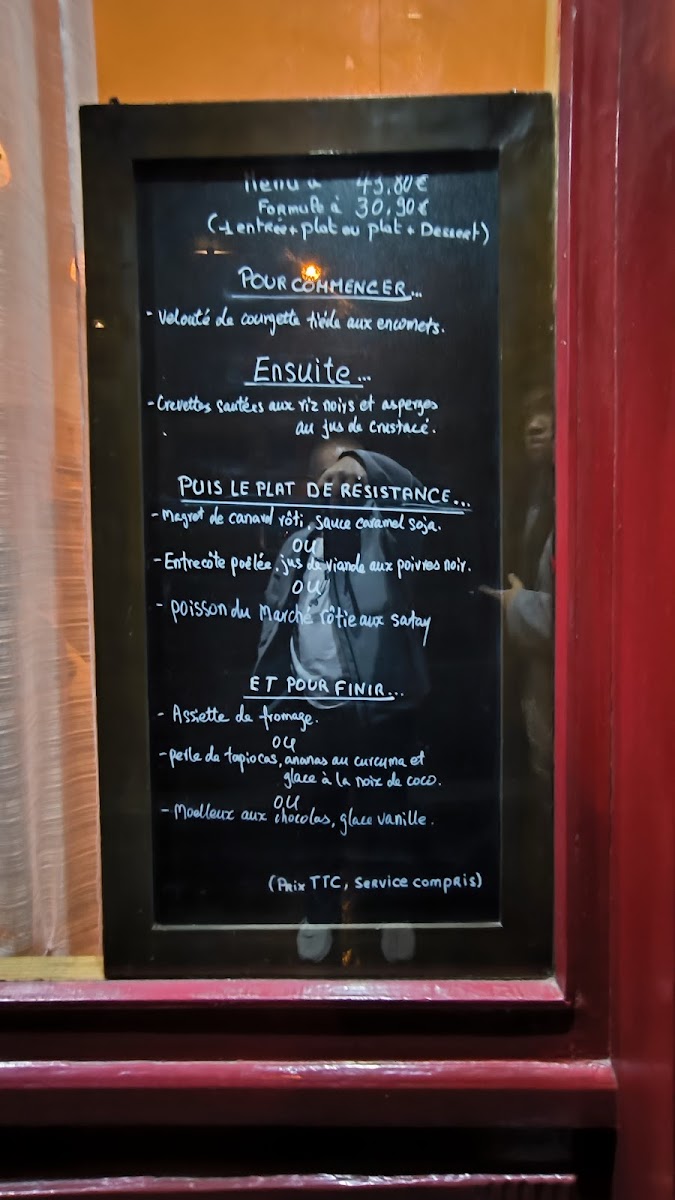 Menu à 43,80€
Formule à 30,90€
(1 entrée + plat ou plat + Dessert)
POUR COMMENCER...
- Velouté de courgette tiède aux encornets.
Ensuite...
- Crevettes sautées aux riz noirs et asperges
au jus de crustacé.
PUIS LE PLAT DE RÉSISTANCE...
- Magret de canard rôti, sauce caramel soja.
OU
- Entrecôte poêlée, jus de viande aux poivres noir.
OU
- poisson du Marché rôtie aux satay
ET POUR FINIR...
- Assiette de fromage.
OU
- perle de tapiocas, ananas au curcuma et
glace à la noix de coco.
OU
- Moelleux aux chocolas, glace vanille.
(Prix TTC, Service compris)